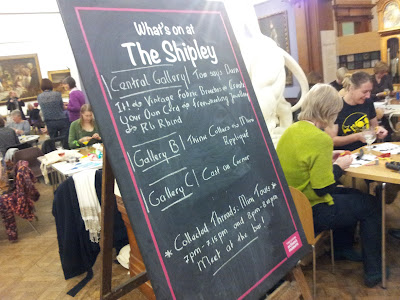 What's on at
The Shipley
Central Gallery | Tom says Darn
It! → Vintage Fabric Brooches → Create
Your Own Card → Freemaking Jewellery
→ Rb Rbind
Gallery B | Think Collars via Mum
Appliqued
Gallery C | Cast on Corner
* Collected Threads Mini Tours *
7pm-7.15pm and 8pm-8.15pm
Meet at the bar!